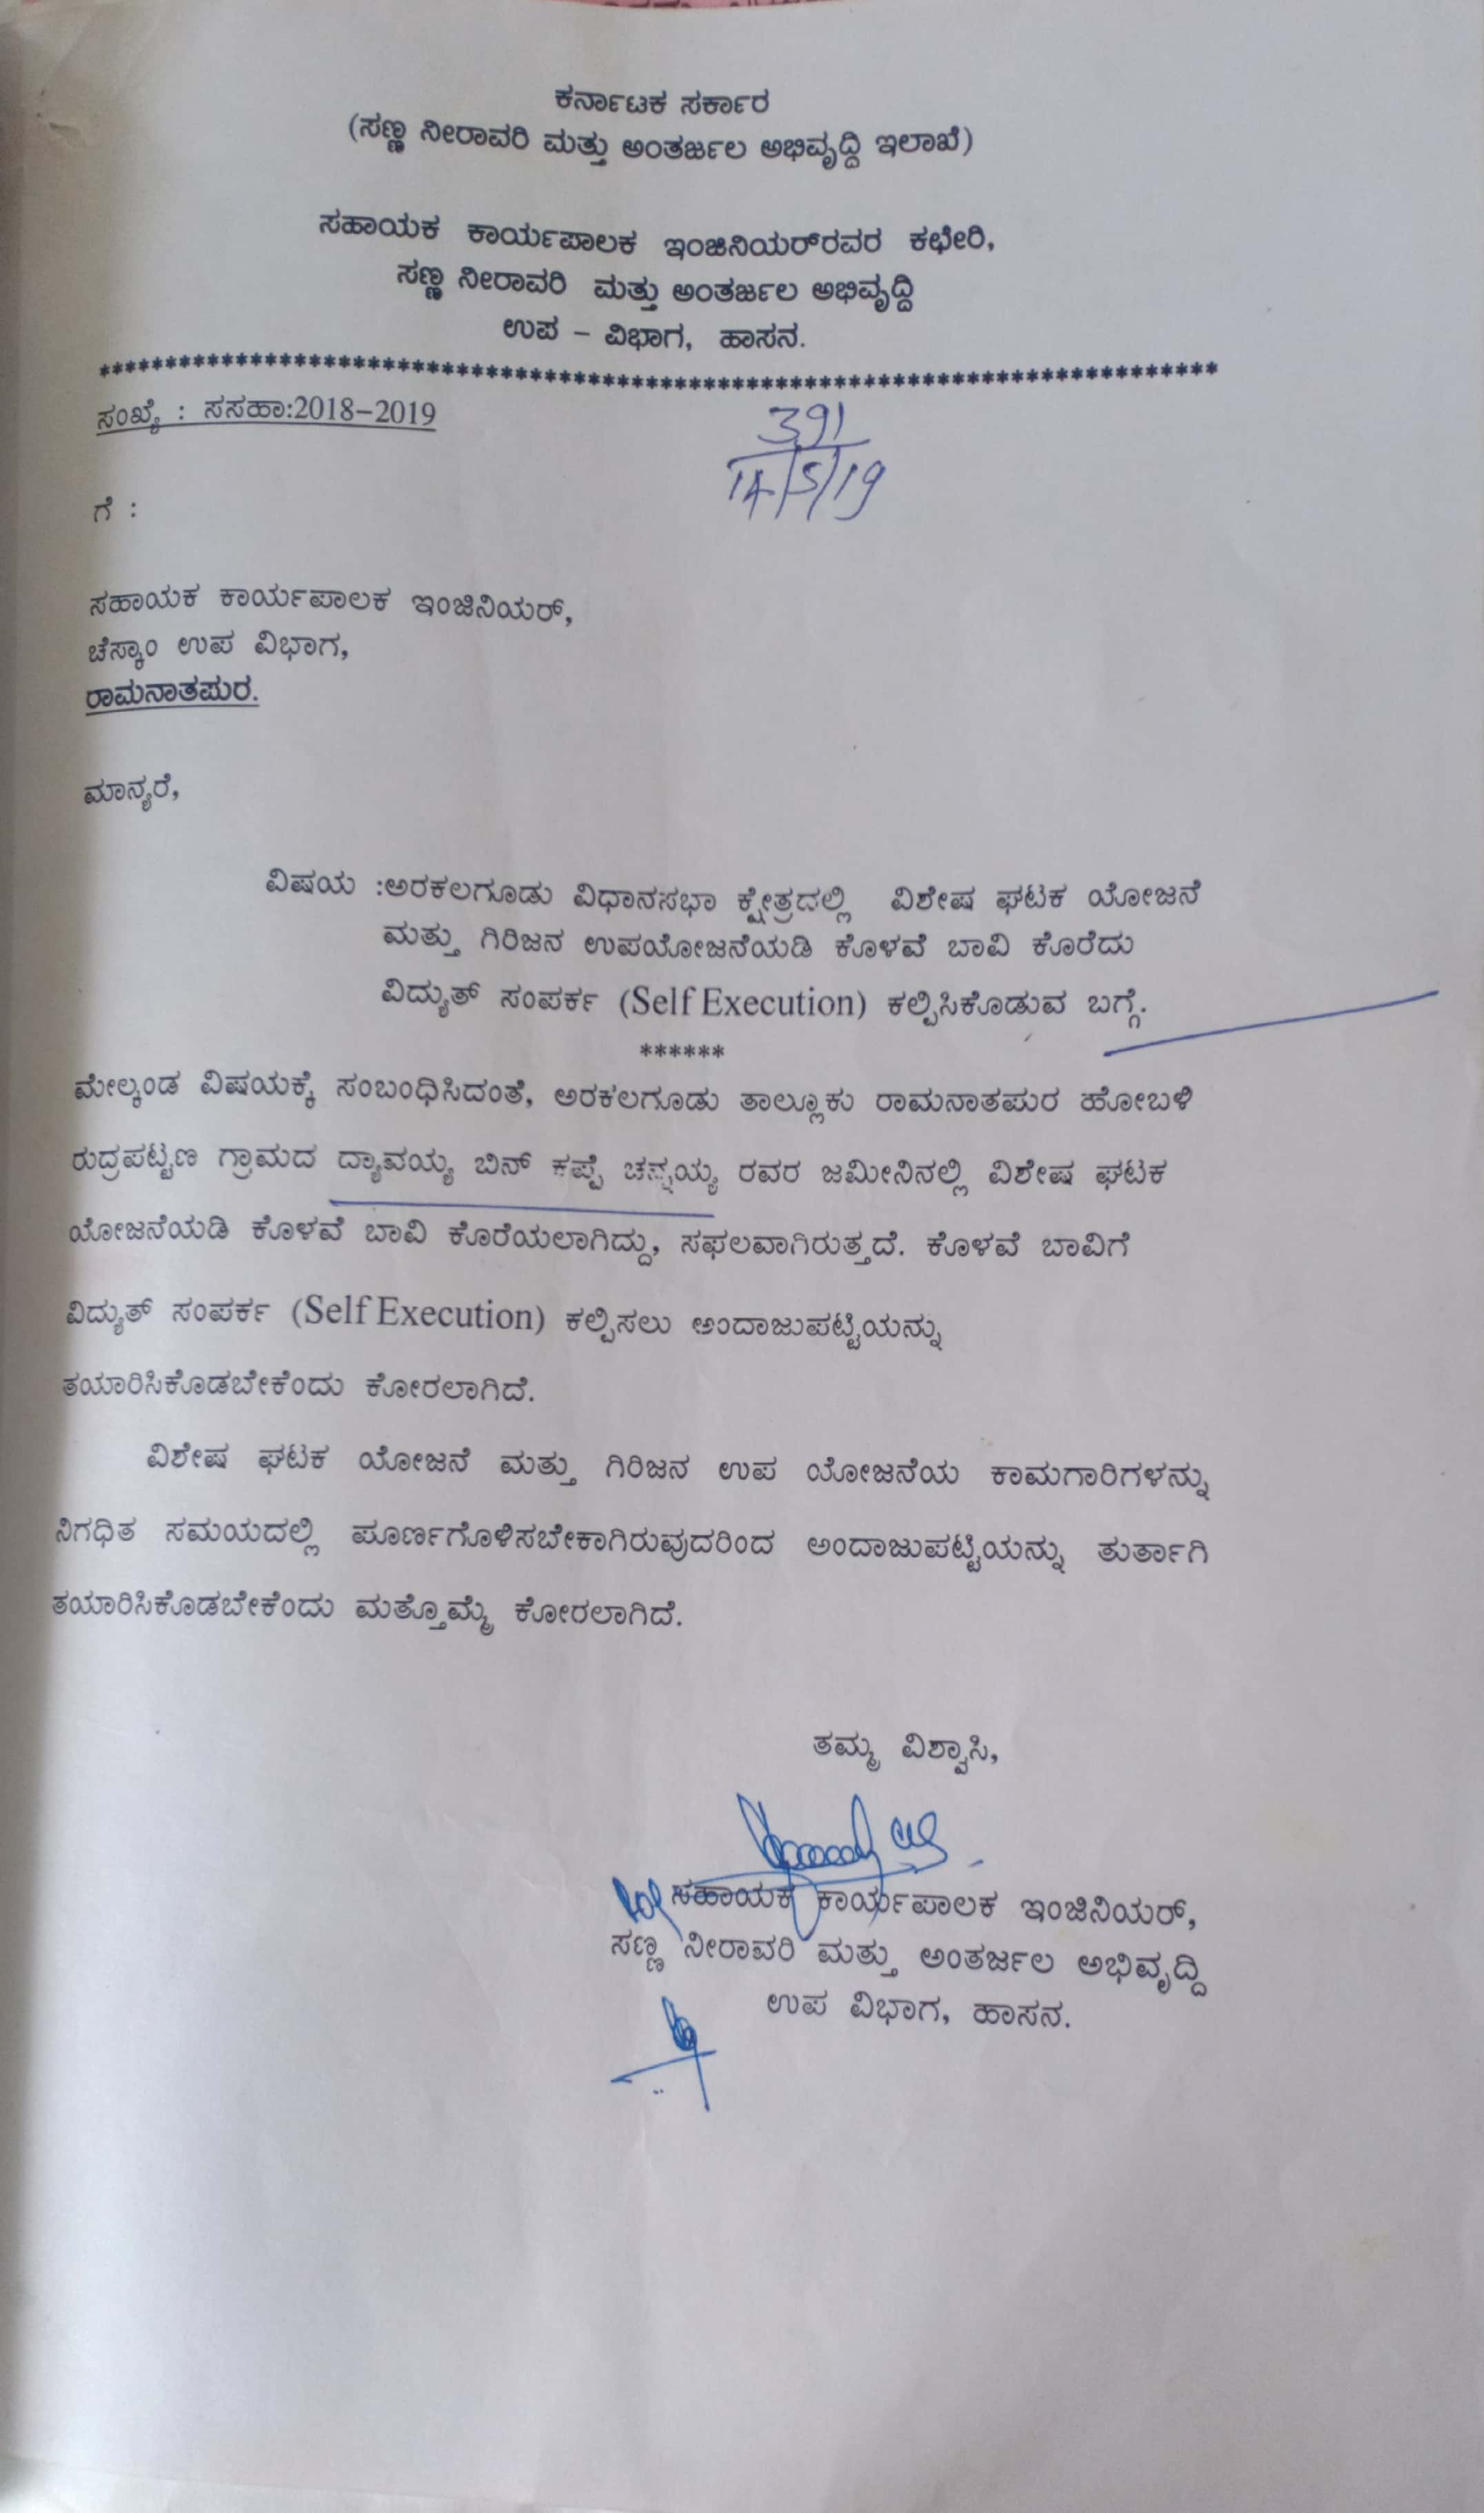 ಕರ್ನಾಟಕ ಸರ್ಕಾರ
(ಸಣ್ಣ ನೀರಾವರಿ ಮತ್ತು ಅಂತರ್ಜಲ ಅಭಿವೃದ್ದಿ ಇಲಾಖೆ)
ಸಹಾಯಕ ಕಾರ್ಯಪಾಲಕ ಇಂಜಿನಿಯರ್‌ರವರ ಕಛೇರಿ,
ಸಣ್ಣ ನೀರಾವರಿ ಮತ್ತು ಅಂತರ್ಜಲ ಅಭಿವೃದ್ದಿ
ಉಪ – ವಿಭಾಗ, ಹಾಸನ.
************************************************************************************
ಸಂಖ್ಯೆ : ಸಸಹಾ:2018–2019
391
14/5/19
ಗೆ :
ಸಹಾಯಕ ಕಾರ್ಯಪಾಲಕ ಇಂಜಿನಿಯರ್,
ಚೆಸ್ಕಾಂ ಉಪ ವಿಭಾಗ,
ರಾಮನಾತಪುರ.
ಮಾನ್ಯರೆ,
ವಿಷಯ :ಅರಕಲಗೂಡು ವಿಧಾನಸಭಾ ಕ್ಷೇತ್ರದಲ್ಲಿ ವಿಶೇಷ ಘಟಕ ಯೋಜನೆ
ಮತ್ತು ಗಿರಿಜನ ಉಪಯೋಜನೆಯಡಿ ಕೊಳವೆ ಬಾವಿ ಕೊರೆದು
ವಿದ್ಯುತ್ ಸಂಪರ್ಕ (Self Execution) ಕಲ್ಪಿಸಿಕೊಡುವ ಬಗ್ಗೆ.
******
ಮೇಲ್ಕಂಡ ವಿಷಯಕ್ಕೆ ಸಂಬಂಧಿಸಿದಂತೆ, ಅರಕಲಗೂಡು ತಾಲ್ಲೂಕು ರಾಮನಾತಪುರ ಹೋಬಳಿ
ರುದ್ರಪಟ್ಟಣ ಗ್ರಾಮದ ದ್ಯಾವಯ್ಯ ಬಿನ್ ಕಪ್ಪೆ ಚನ್ನಯ್ಯ ರವರ ಜಮೀನಿನಲ್ಲಿ ವಿಶೇಷ ಘಟಕ
ಯೋಜನೆಯಡಿ ಕೊಳವೆ ಬಾವಿ ಕೊರೆಯಲಾಗಿದ್ದು, ಸಫಲವಾಗಿರುತ್ತದೆ. ಕೊಳವೆ ಬಾವಿಗೆ
ವಿದ್ಯುತ್ ಸಂಪರ್ಕ (Self Execution) ಕಲ್ಪಿಸಲು ಅಂದಾಜುಪಟ್ಟಿಯನ್ನು
ತಯಾರಿಸಿಕೊಡಬೇಕೆಂದು ಕೋರಲಾಗಿದೆ.
ವಿಶೇಷ ಘಟಕ ಯೋಜನೆ ಮತ್ತು ಗಿರಿಜನ ಉಪ ಯೋಜನೆಯ ಕಾಮಗಾರಿಗಳನ್ನು
ನಿಗಧಿತ ಸಮಯದಲ್ಲಿ ಪೂರ್ಣಗೊಳಿಸಬೇಕಾಗಿರುವುದರಿಂದ ಅಂದಾಜುಪಟ್ಟಿಯನ್ನು ತುರ್ತಾಗಿ
ತಯಾರಿಸಿಕೊಡಬೇಕೆಂದು ಮತ್ತೊಮ್ಮೆ ಕೋರಲಾಗಿದೆ.
ತಮ್ಮ ವಿಶ್ವಾಸಿ,
ಸಹಾಯಕ ಕಾರ್ಯಪಾಲಕ ಇಂಜಿನಿಯರ್,
ಸಣ್ಣ ನೀರಾವರಿ ಮತ್ತು ಅಂತರ್ಜಲ ಅಭಿವೃದ್ದಿ
ಉಪ ವಿಭಾಗ, ಹಾಸನ.